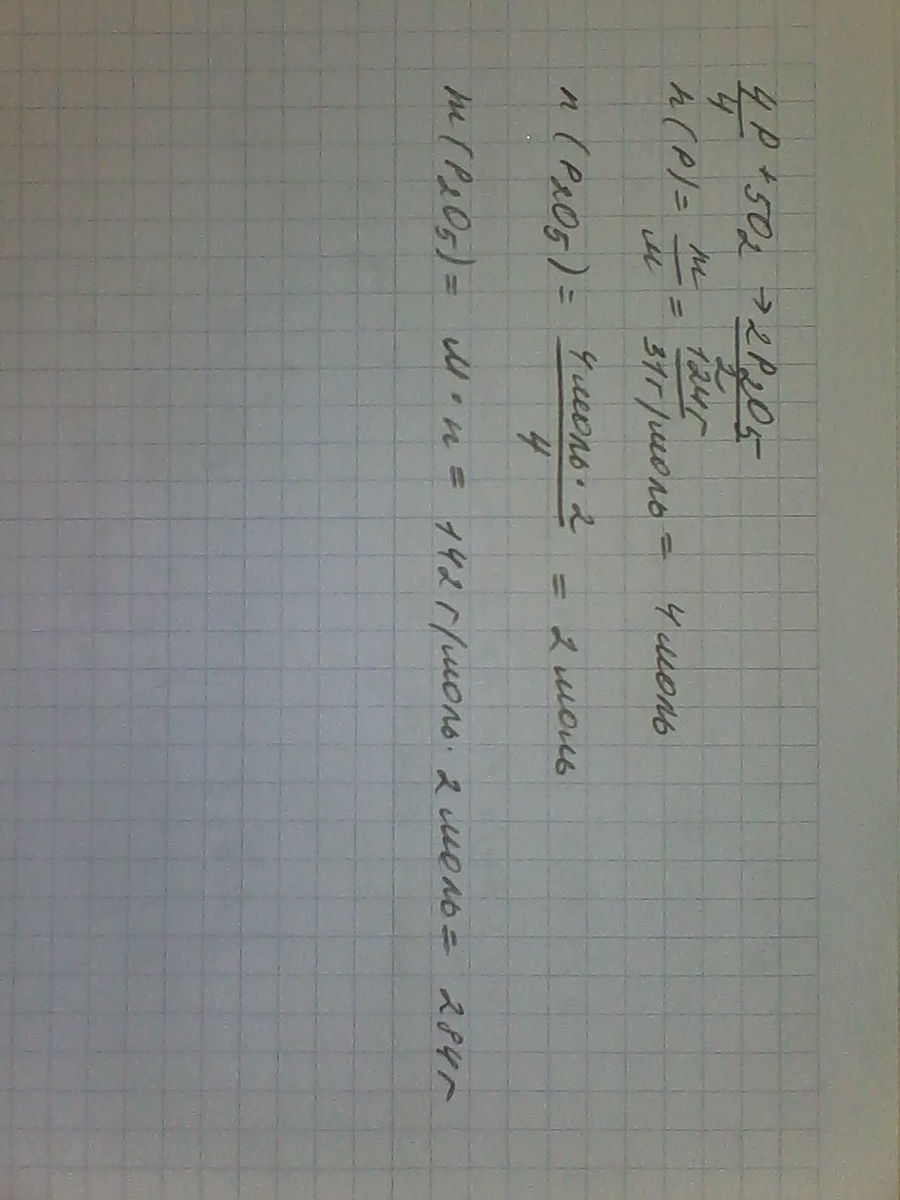 4P + 5O₂ → 2P₂O₅
4 2
n(P) = m/M = 124г/31г/моль = 4 моль
n(P₂O₅) = 4 моль · 2/4 = 2 моль
m(P₂O₅) = M · n = 142 г/моль · 2 моль = 284г